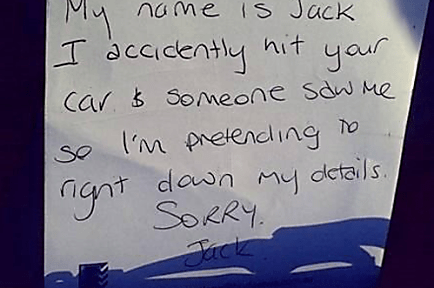 My name is Jack
I accidently hit your
car & someone saw me
so I'm pretending to
right down my details.
SORRY.
Jack